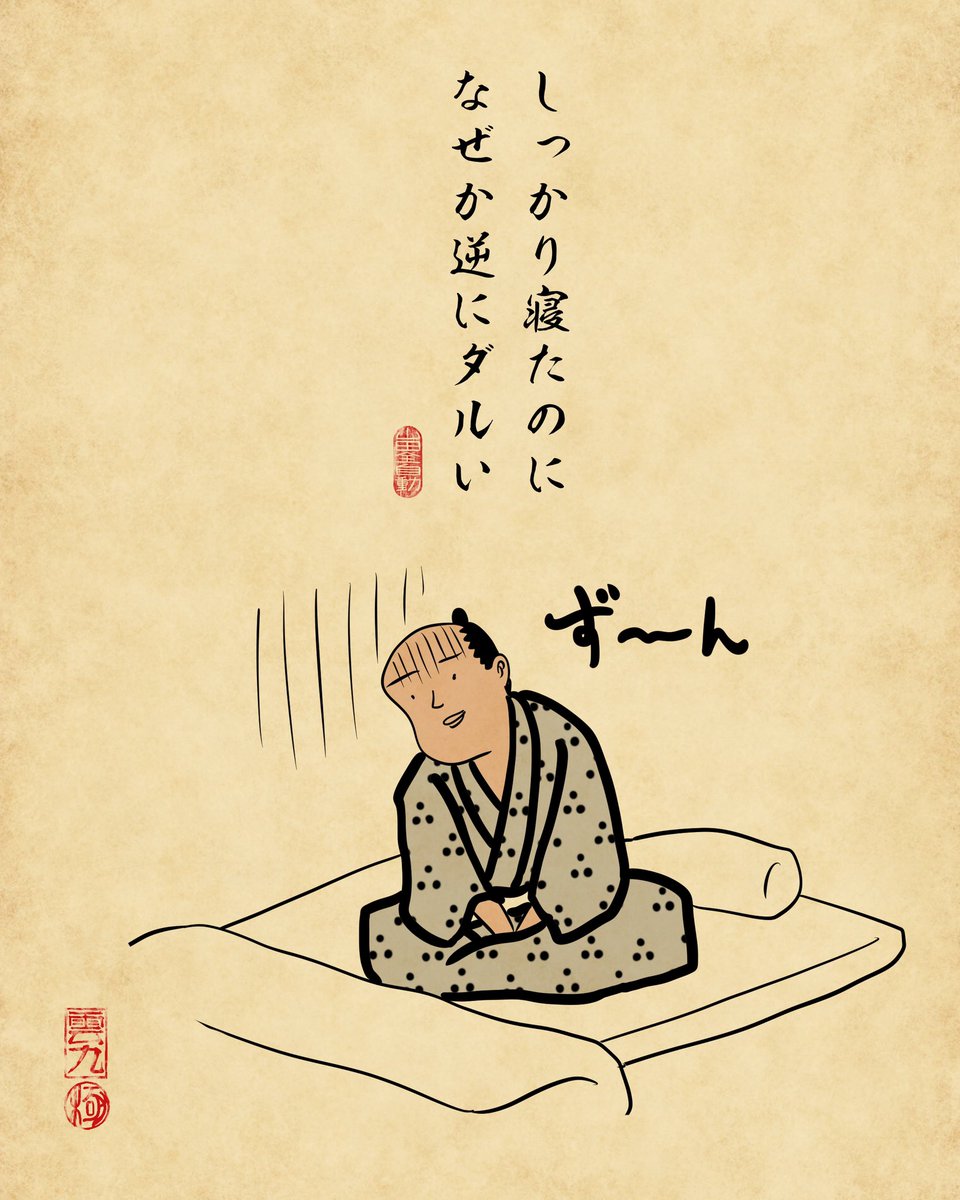 しっかり寝たのに
なぜか逆にダルい
ず〜ん